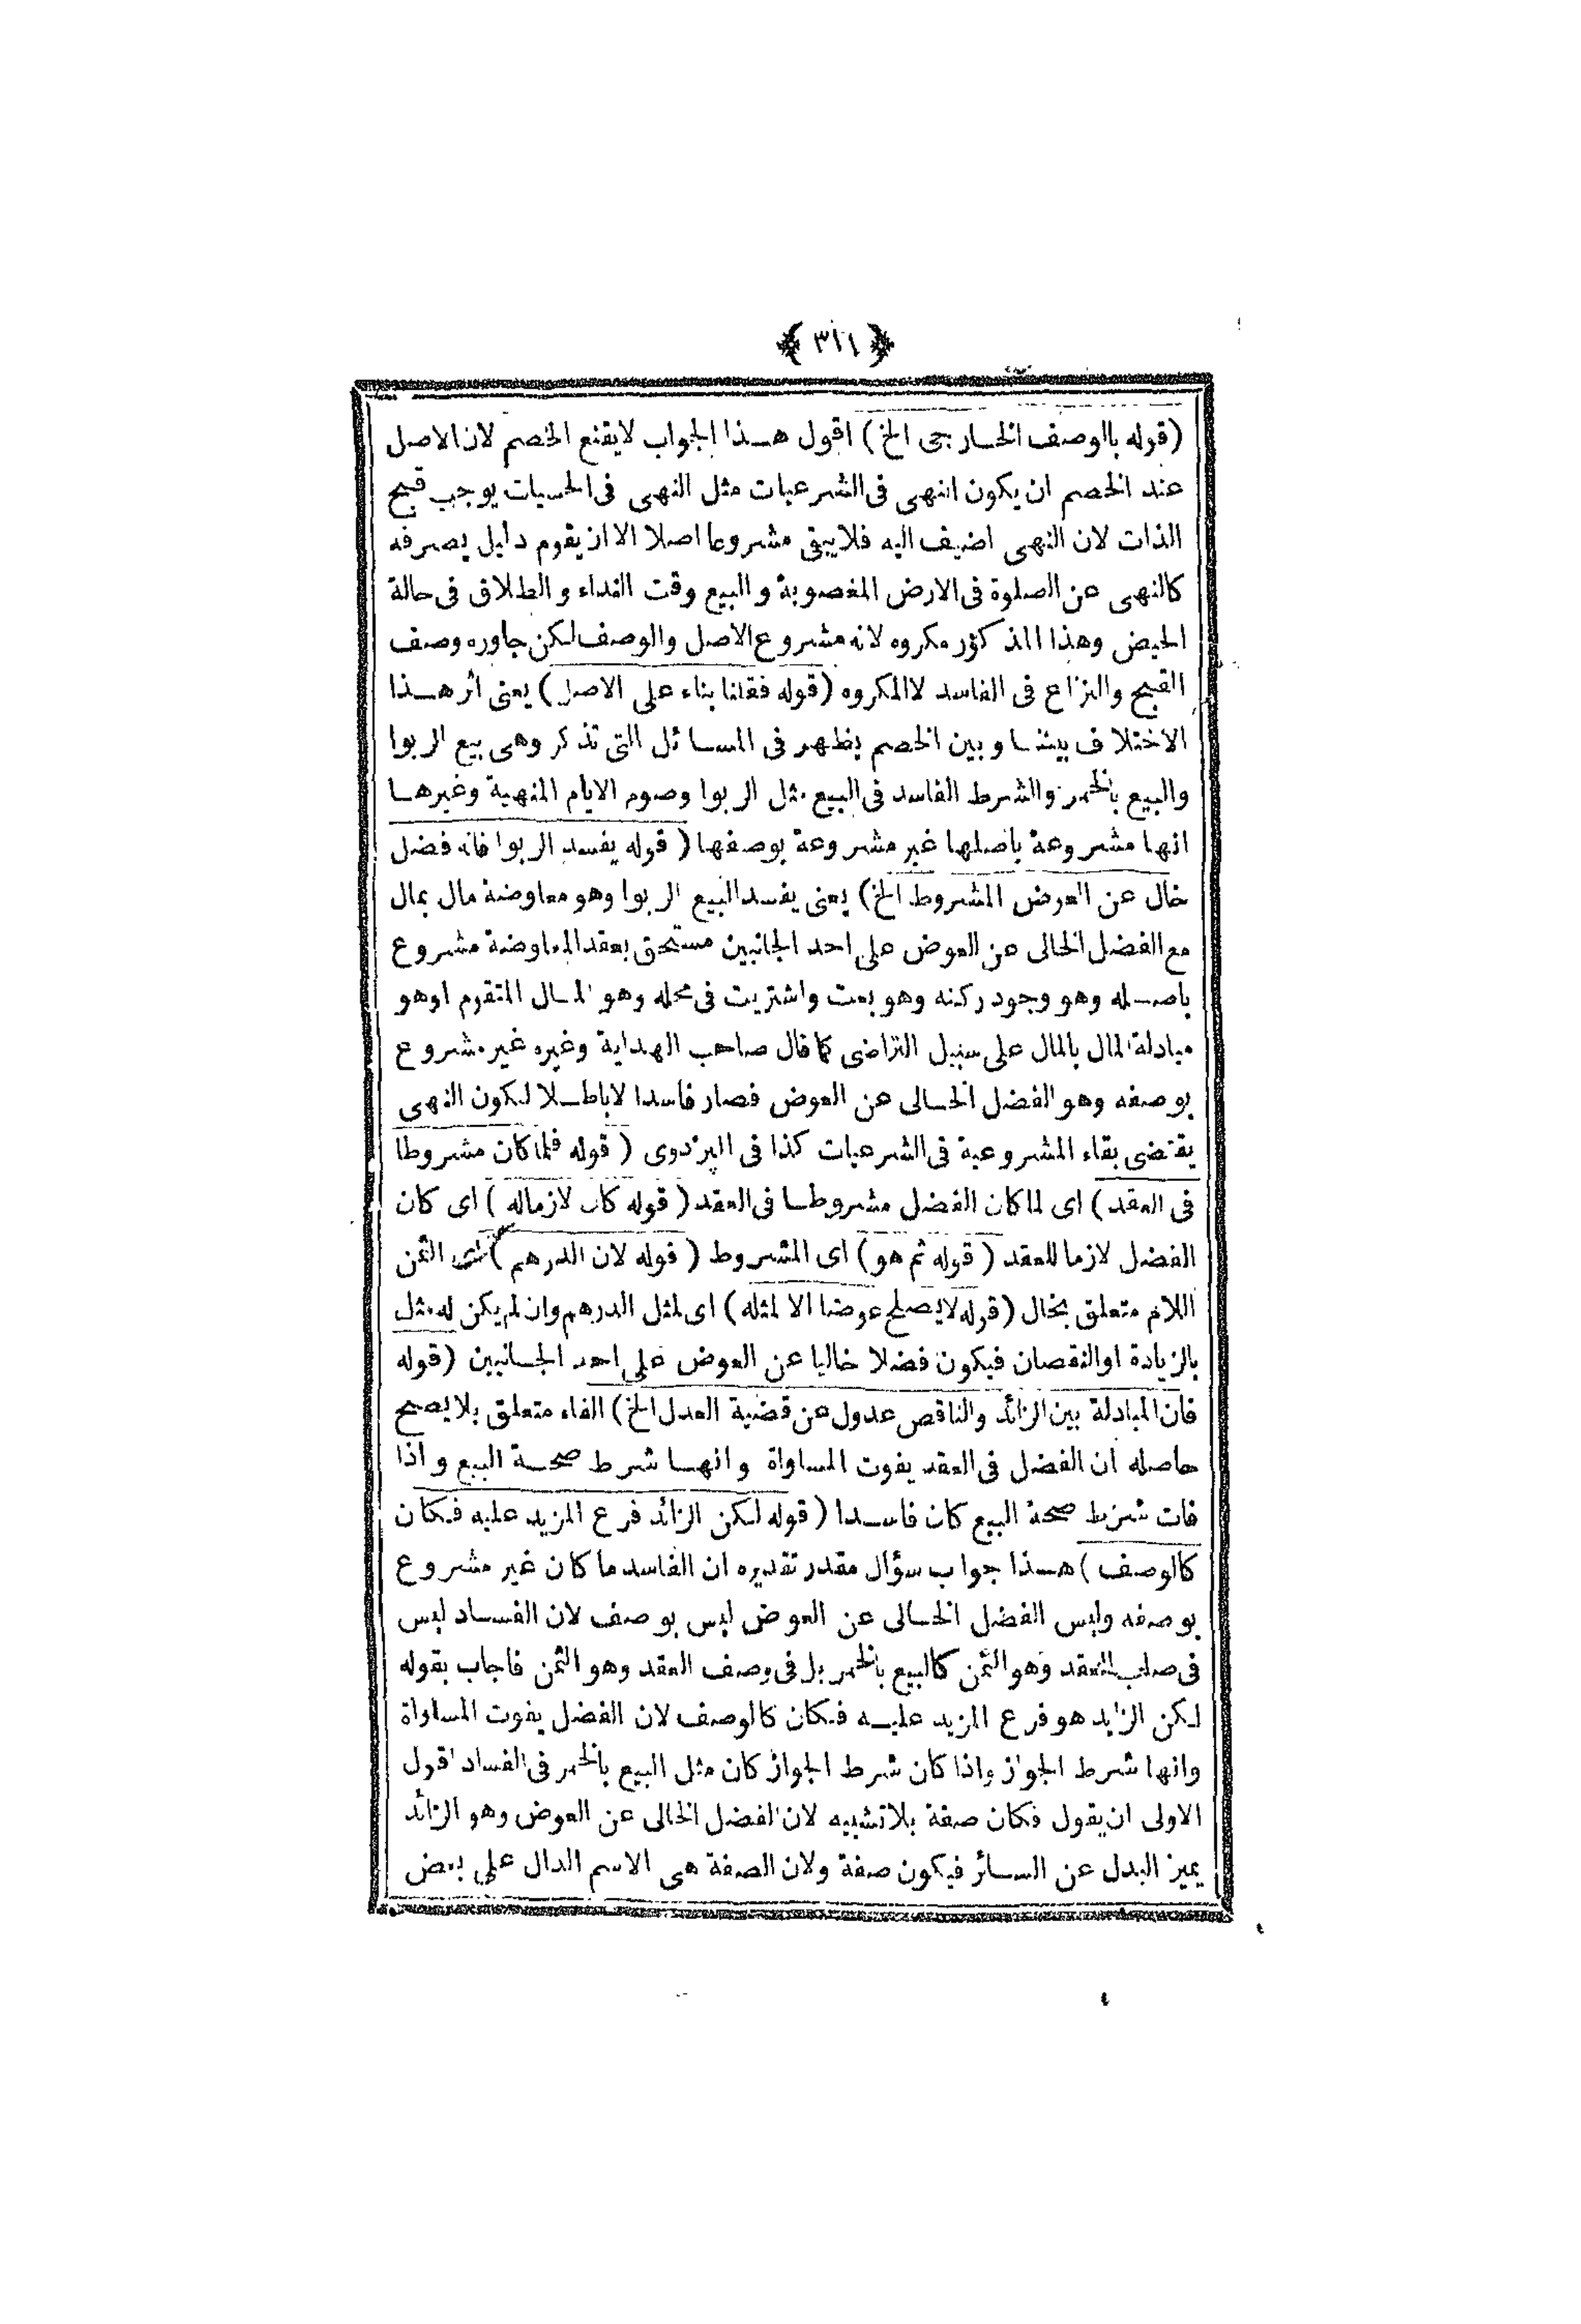 ﴿ ٣٢١ ﴾
(قوله بالوصف الخارجى الخ) اقول هذا الجواب لايقنع الخصم لان الاصل
عند الخصم ان يكون النهى فى الشرعيات مثل النهى فى الحسيات يوجب قبح
الذات لان النهى اضيف اليه فلايبقى مشروعا اصلا الا ان يقوم دليل يصرفه
كالنهى عن الصلوة فى الارض المغصوبة والبيع وقت النداء والطلاق فى حالة
الحيض وهذا المذكور مكروه لانه مشروع الاصل والوصف لكن جاوره وصف
القبيح والنزاع فى الفاسد لاالمكروه (قوله فقلنا بناء على الاصل) يعنى اثر هذا
الاختلاف بيننا وبين الخصم يظهر فى المسائل التى تذكر وهى بيع الربوا
والبيع بالخمر والشرط الفاسد فى البيع مثل الربوا وصوم الايام المنهية وغيرها
انها مشروعة باصلها غير مشروعة بوصفها (قوله يفسد الربوا فانه فضل
خال عن العوض المشروط الخ) يعنى يفسد البيع الربوا وهو معاوضة مال بمال
مع الفضل الخالى عن العوض على احد الجانبين مستحق بعقد المعاوضة مشروع
باصله وهو وجود ركنه وهو بعت واشتريت فى محله وهو المال المتقوم اوهو
مبادلة المال بالمال على سبيل التراضى كما قال صاحب الهداية وغيره غير مشروع
بوصفه وهو الفضل الخالى عن العوض فصار فاسدا لاباطلا لكون النهى
يقتضى بقاء المشروعية فى الشرعيات كذا فى البزدوى (قوله فلما كان مشروطا
فى العقد) اى لما كان الفضل مشروطا فى العقد (قوله كان لازماله) اى كان
الفضل لازما للعقد (قوله ثم هو) اى المشروط (قوله لان الدرهم) اى الثمن
اللام متعلق بخال (قوله لايصلح عوضا الا لمثله) اى لمثل الدرهم وان لم يكن له مثل
بالزيادة اوالنقصان فيكون فضلا خاليا عن العوض على احد الجانبين (قوله
فان المبادلة بين الزائد والناقص عدول عن قضية العدل الخ) الفاء متعلق بلايصح
حاصله ان الفضل فى العقد يفوت المساواة وانها شرط صحة البيع واذا
فات شرط صحة البيع كان فاسدا (قوله لكن الزائد فرع المزيد عليه فكان
كالوصف) هذا جواب سؤال مقدر تقديره ان الفاسد ما كان غير مشروع
بوصفه وليس الفضل الخالى عن العوض ليس بوصف لان الفساد ليس
فى صلب العقد وهو الثمن كالبيع بالخمر بل فى وصف العقد وهو الثمن فاجاب بقوله
لكن الزايد هو فرع المزيد عليه فكان كالوصف لان الفضل يفوت المساواة
وانها شرط الجواز واذا كان شرط الجواز كان مثل البيع بالخمر فى الفساد اقول
الاولى ان يقول فكان صفة بلاتشبيه لان الفضل الخالى عن العوض وهو الزائد
يميز البدل عن السائر فيكون صفة ولان الصفة هى الاسم الدال على بعض